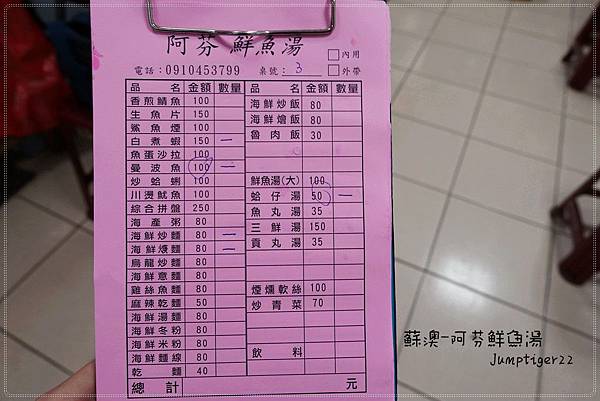 阿芬 鮮魚湯
□內用
電話：0910453799 桌號：3 □外帶
品名 金額 數量
香煎鯖魚 100
生魚片 150
鯊魚煙 100
白煮蝦 150 一
魚蛋沙拉 100
曼波魚 100 一
炒蛤蜊 100
川燙魷魚 100
綜合拼盤 250
海產粥 80
海鮮炒麵 80 一
海鮮焿麵 80 一
烏龍炒麵 80
海鮮意麵 80
雞絲魚麵 80
麻辣乾麵 50
海鮮湯麵 80
海鮮冬粉 80
海鮮米粉 80
海鮮麵線 80
乾麵 40
品名 金額 數量
海鮮炒飯 80
海鮮燴飯 80
魯肉飯 30
鮮魚湯(大) 100
蛤仔湯 50 一
魚丸湯 35
三鮮湯 150
貢丸湯 35
煙燻軟絲 100
炒青菜 70
飲料
總計 元
蘇澳-阿芬鮮魚湯
Jumptiger22